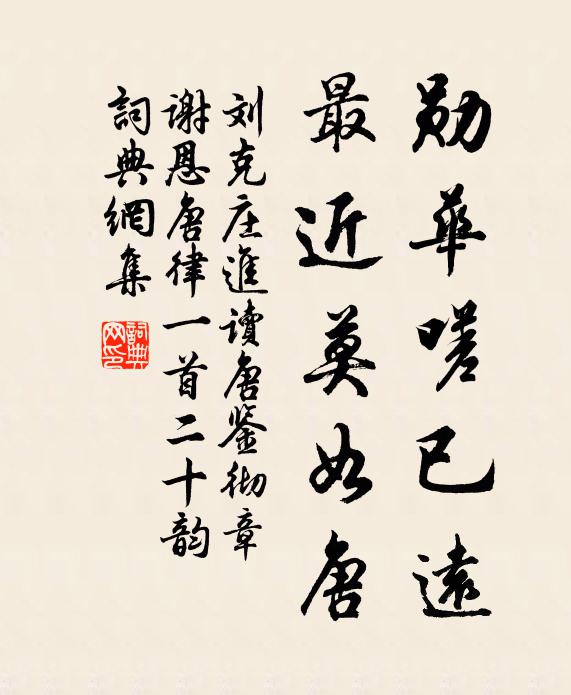 勋華嗟已遠
最近莫如唐
刘克庄進讀唐鉴彻章
谢恩唐律一首二十韵
詞典網集
詞典网印